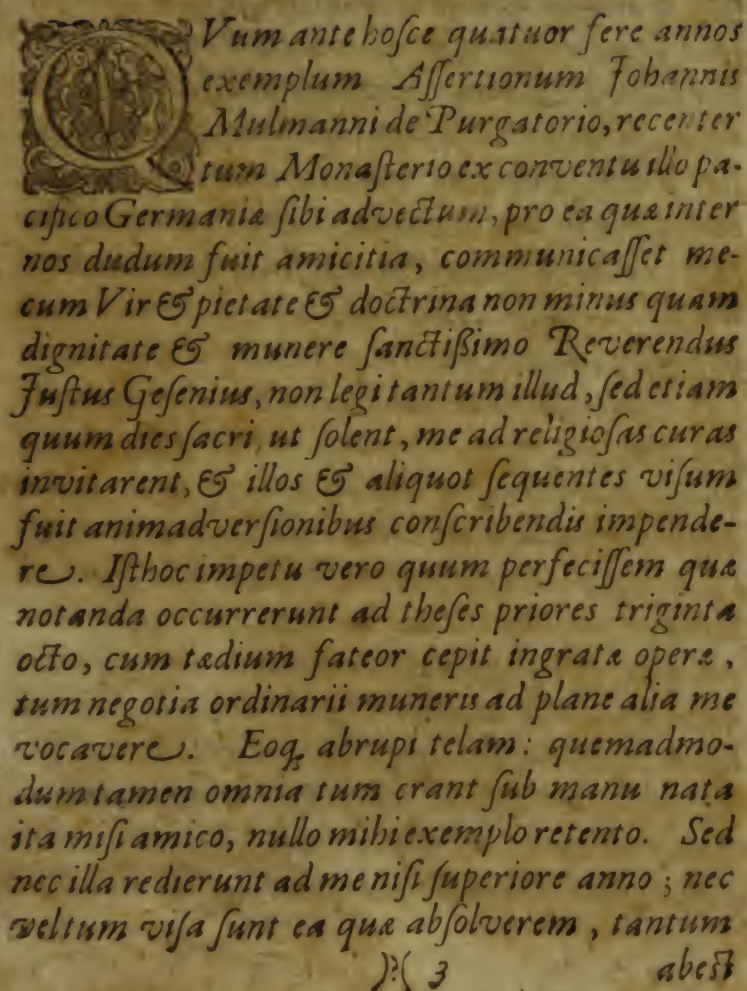 QVum ante hoſce quatuor fere annos
exemplum Aſſertionum Johannis
Mulmanni de Purgatorio, recenter
tum Monaſterio ex conventu illo pa-
cifico Germaniæ ſibi advectum, pro ea quæ inter
nos dudum fuit amicitia, communicaſſet me-
cum Vir & pietate & doctrina non minus quam
dignitate & munere ſanctißimo Reverendus
Juſtus Geſenius, non legi tantum illud, ſed etiam
quum dies ſacri, ut ſolent, me ad religioſas curas
invitarent, & illos & aliquot ſequentes viſum
fuit animadverſionibus conſcribendis impende-
re. Iſthoc impetu vero quum perfeciſſem quæ
notanda occurrerunt ad theſes priores triginta
octo, cum tædium fateor cepit ingratæ operæ,
tum negotia ordinarii muneris ad plane alia me
vocavere. Eoq́ꝫ abrupi telam: quemadmo-
dum tamen omnia tum erant ſub manu nata
ita miſi amico, nullo mihi exemplo retento. Sed
nec illa redierunt ad me niſi ſuperiore anno; nec
vel tum viſa ſunt ea quæ abſolverem, tantum
)?( 3 abeſt